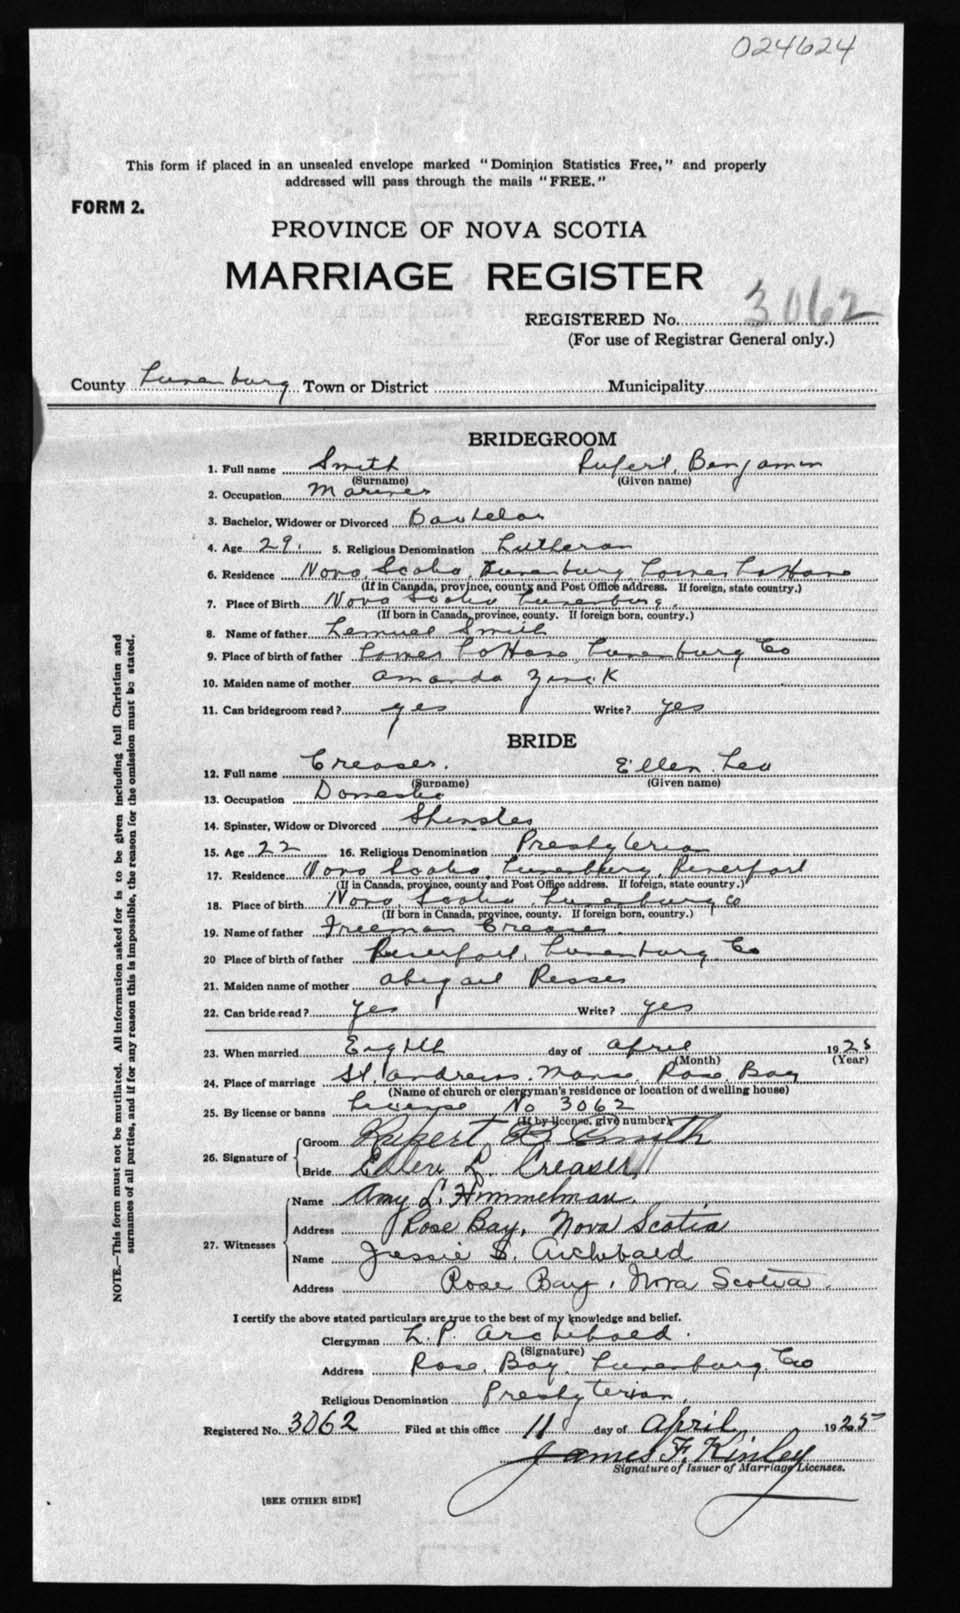 024624
This form if placed in an unsealed envelope marked "Dominion Statistics Free," and properly
addressed will pass through the mails "FREE."
FORM 2.
PROVINCE OF NOVA SCOTIA
MARRIAGE REGISTER
REGISTERED No. 3062
(For use of Registrar General only.)
County Lunenburg Town or District Municipality
BRIDEGROOM
1. Full name Smith Rupert, Benjamin
(Surname) (Given name)
2. Occupation Mariner
3. Bachelor, Widower or Divorced Bachelor
4. Age 29. 5. Religious Denomination Lutheran
6. Residence Nova Scotia, Lunenburg, Lower LaHave
(If in Canada, province, county and Post Office address. If foreign, state country.)
7. Place of Birth Nova Scotia Lunenburg.
(If born in Canada, province, county. If foreign born, country.)
8. Name of father Lemuel Smith
9. Place of birth of father Lower LaHave, Lunenburg Co
10. Maiden name of mother Amanda Zinck
11. Can bridegroom read? yes Write? yes
BRIDE
12. Full name Creaser. Ellen Lea
(Surname) (Given name)
13. Occupation Domestic
14. Spinster, Widow or Divorced Spinster
15. Age 22 16. Religious Denomination Presbyterian
17. Residence Nova Scotia, Lunenburg, Riverport
(If in Canada, province, county and Post Office address. If foreign, state country.)
18. Place of birth Nova Scotia, Lunenburg Co
(If born in Canada, province, county. If foreign born, country.)
19. Name of father Freeman Creaser.
20 Place of birth of father Riverport, Lunenburg Co
21. Maiden name of mother Abigail
22. Can bride read? yes Write? yes
23. When married Eighth day of April 1925
(Month) (Year)
24. Place of marriage St. Andrews Manse, Rose Bay
(Name of church or clergyman's residence or location of dwelling house)
25. By license or banns License No 3062
(If by license, give number)
26. Signature of
Groom Rupert B Smith
Bride Ellen L. Creaser
27. Witnesses
Name Amy L. Himmelman.
Address Rose Bay, Nova Scotia
Name Jessie S. Archibald
Address Rose Bay, Nova Scotia.
I certify the above stated particulars are true to the best of my knowledge and belief.
Clergyman L. P. Archibald.
(Signature)
Address Rose Bay, Lunenburg Co
Religious Denomination Presbyterian
Registered No. 3062 Filed at this office 11 day of April 1925
James F. Kinley
Signature of Issuer of Marriage Licenses.
[SEE OTHER SIDE]
NOTE.—This form must not be mutilated. All information asked for is to be given including full Christian and
surnames of all parties, and if for any reason this is impossible, the reason for the omission must be stated.